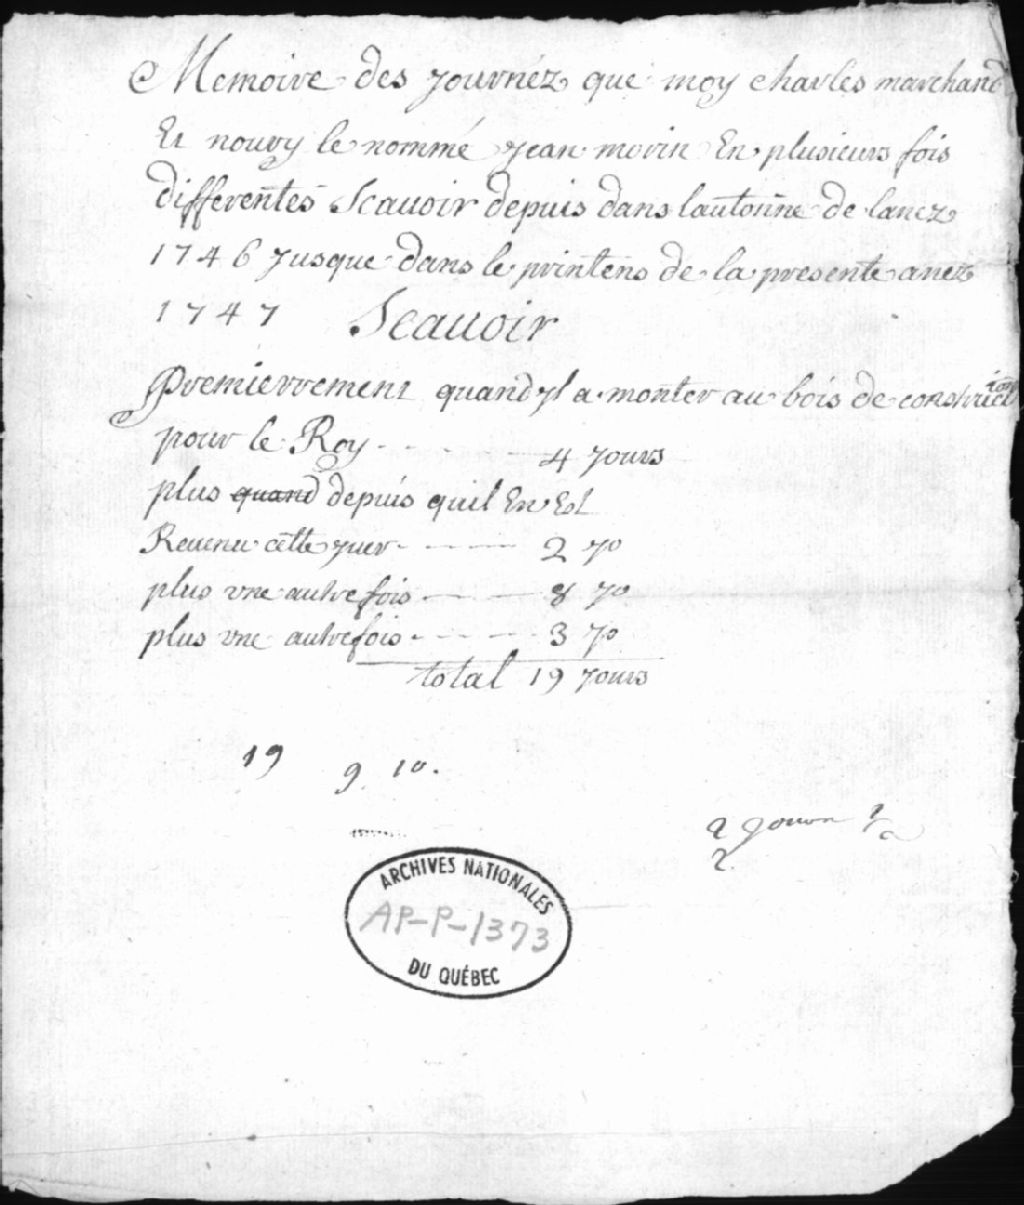 Memoire des journéz que moy charles marchand
Et noury le nommé jean morin En plusieurs fois
differentes Scauoir depuis dans lautonne de lanez
1746 jusque dans le printens de la presente anez
1747 Scauoir
Premierrement quand jl a monter au bois de construction
pour le Roy - - - 4 jours
plus quand depuis quil En Est
Reuenu cette yuer - - - 2 jo
plus vne autre fois - - - 8 jo
plus vne autre fois - - - 3 jo
total 19 jours
19 9 10.
ARCHIVES NATIONALES
AP-P-1373
DU QUÉBEC